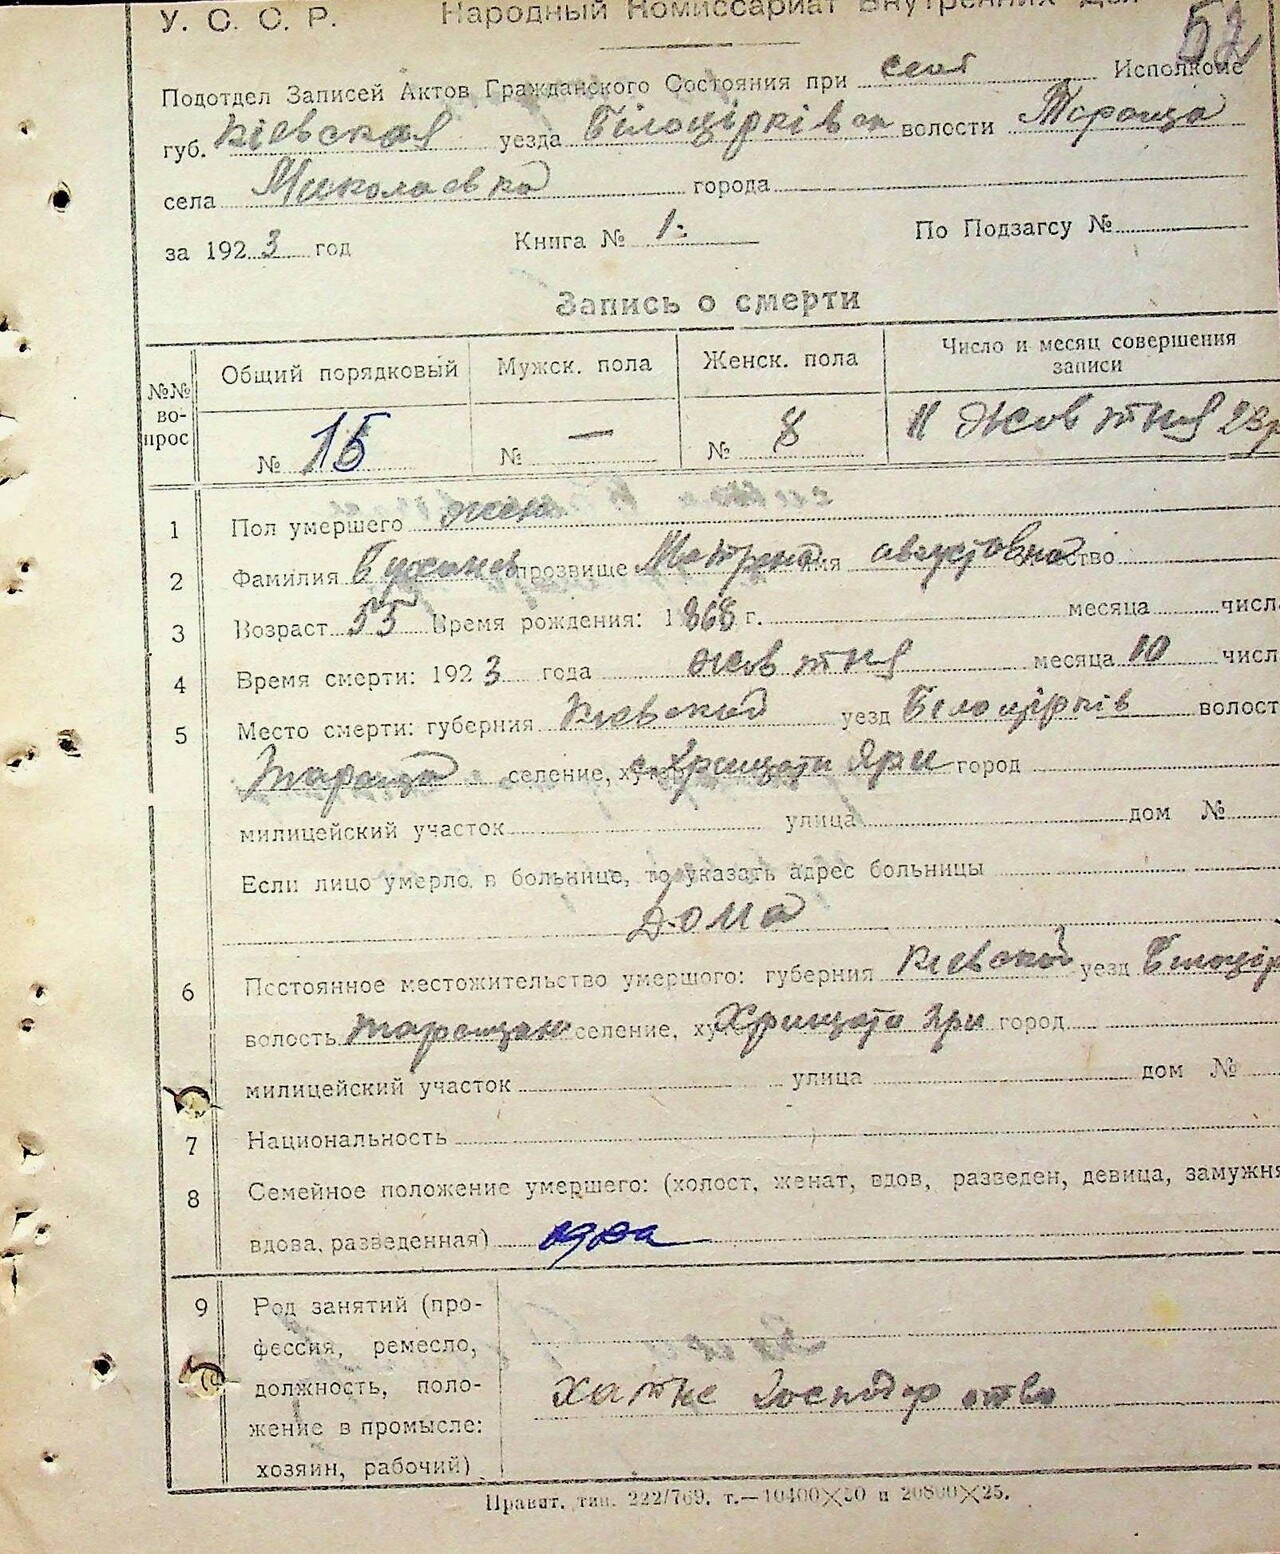 У. С. С. Р. Народный Комиссариат Внутренних Дел
52
Подотдел Записей Актов Гражданского Состояния при Исполкоме
губ. Кіевская уезда Білоцірківск волости Тараща
села Миколаевка города
за 1923 год Книга № 1. По Подзагсу №
Запись о смерти
№№ вопрос Общий порядковый Мужск. пола Женск. пола Число и месяц совершения записи
№ 15 № — № 8 11 жовтня 23 р
1 Пол умершего жен
2 Фамилия прозвище Мотрена имя августовна отчество
3 Возраст 55 Время рождения: 1868 г. месяца числа
4 Время смерти: 1923 года жовтня месяца 10 числ
5 Место смерти: губерния Киевской уезд Білоцірків волост
Тараща селение, хут. с. Хрищати Яри город
милицейский участок улица дом №
Если лицо умерло в больнице, то указать адрес больницы
Дома
6 Постоянное местожительство умершого: губерния Киевской уезд Білоцір
волость селение, хут. Хрищата Яри город
милицейский участок улица дом №
7 Национальность
8 Семейное положение умершего: (холост, женат, вдов, разведен, девица, замужня
вдова, разведенная)
9 Род занятий (про-
фессия, ремесло,
должность, поло- Хатне господарство
жение в промысле:
хозяин, рабочий)
Правит. тип. 222/769. т.—10400×50 и 20800×25.